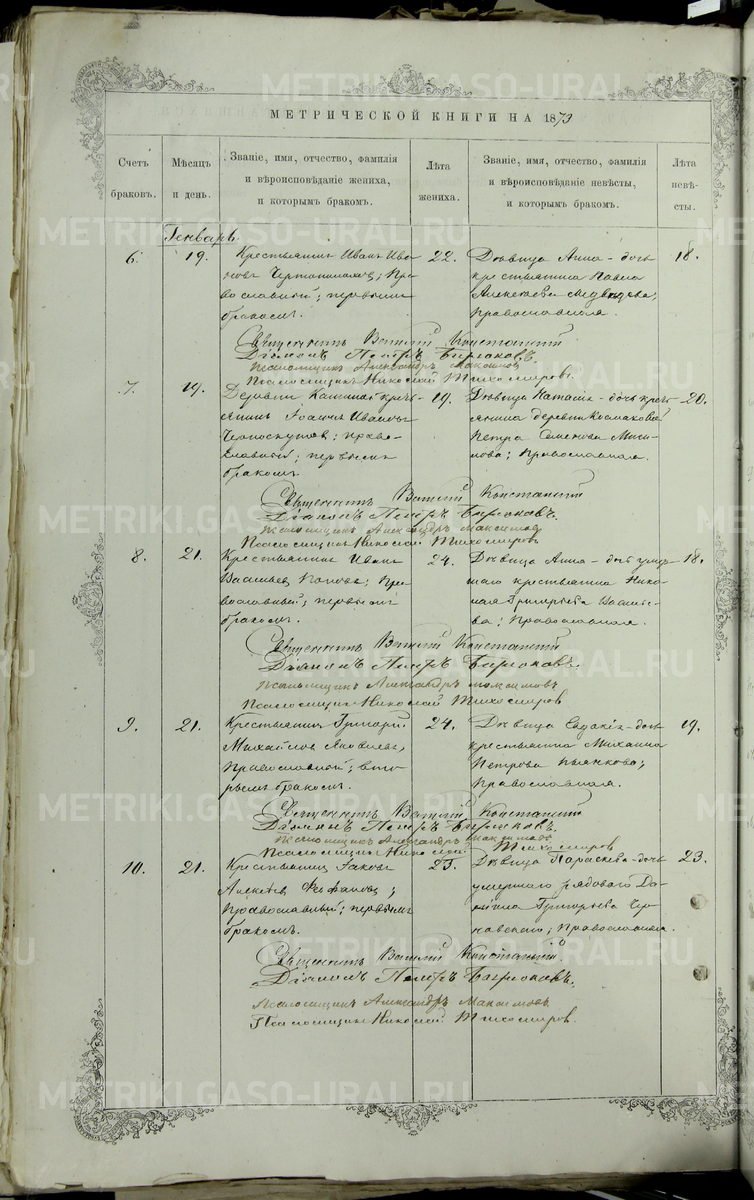 МЕТРИЧЕСКОЙ КНИГИ НА 1873
Счетъ браковъ.
Мѣсяцъ и день.
Званіе, имя, отчество, фамилія и вѣроисповѣданіе жениха, и которымъ бракомъ.
Лѣта жениха.
Званіе, имя, отчество, фамилія и вѣроисповѣданіе невѣсты, и которымъ бракомъ.
Лѣта невѣсты.
Генварь.
6. 19.
Крестьянинъ Иванъ Ива-
новъ; Пра-
вославный; первымъ
бракомъ.
22.
Дѣвица Анна - дочь
крестьянина Павла
Алексѣева Медвѣдева;
Православная.
18.
Священникъ Василій Констанскій
Діаконъ Петръ Бирюковъ.
Псаломщикъ Александръ Максимовъ
Псаломщикъ Николай Тихомировъ.
7. 19.
Деревни кресть-
янинъ Иванъ
Черноскутовъ; Право-
славный; первымъ
бракомъ.
19.
Дѣвица - дочь кресть-
янина деревни Космаковой
Петра Семенова
Православная.
20.
Священникъ Василій Констанскій
Діаконъ Петръ Бирюковъ.
Псаломщикъ Александръ Максимовъ
Псаломщикъ Николай Тихомировъ
8. 21.
Крестьянинъ Иванъ
Васильевъ Поповъ; Пра-
вославный; первымъ
бракомъ.
24.
Дѣвица Анна - дочь умер-
шаго крестьянина Нико-
лая Григорьева Василье-
ва; Православная.
18.
Священникъ Василій Констанскій
Діаконъ Петръ Бирюковъ.
Псаломщикъ Александръ Максимовъ
Псаломщикъ Николай Тихомировъ
9. 21.
Крестьянинъ Григорій
Михайловъ Яковлевъ;
Православный; вто-
рымъ бракомъ.
24.
Дѣвица Евдокія - дочь
крестьянина Михаила
Петрова Пьянкова;
Православная.
19.
Священникъ Василій Констанскій
Діаконъ Петръ Бирюковъ.
Псаломщикъ Александръ Максимовъ
Псаломщикъ Николай Тихомировъ
10. 21.
Крестьянинъ Іаковъ
Алексѣевъ Феофановъ;
Православный; первымъ
бракомъ.
23.
Дѣвица Параскева - дочь
умершаго рядоваго Да-
ніила Григорьева Чер-
навскаго; Православная.
23.
Священникъ Василій Констанскій.
Діаконъ Петръ Бирюковъ.
Псаломщикъ Александръ Максимовъ
Псаломщикъ Николай Тихомировъ.
METRIKI.GASO-URAL.RU